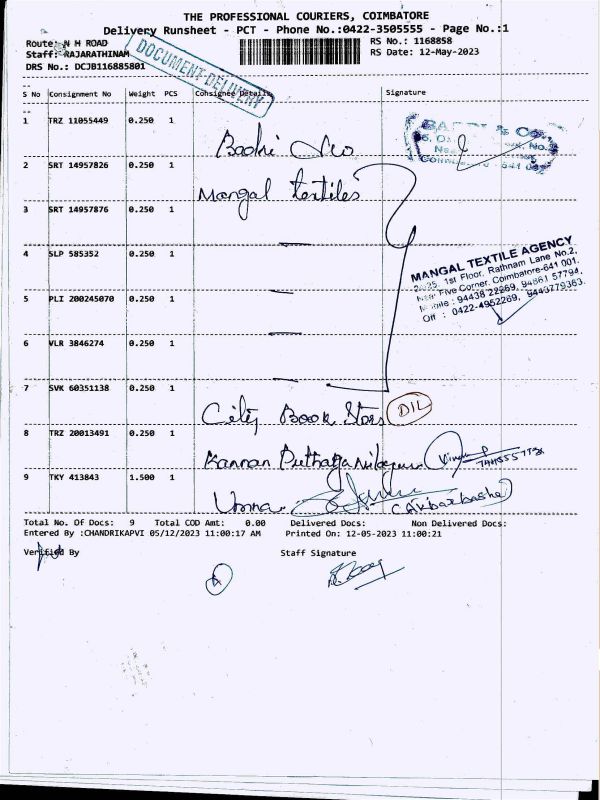 THE PROFESSIONAL COURIERS, COIMBATORE
Delivery Runsheet - PCT - Phone No.:0422-3505555 - Page No.:1
Route: N H ROAD
RS No.: 1168858
Staff: RAJARATHINAM
RS Date: 12-May-2023
DRS No.: DCJB116885801
DOCUMENT-DELIVERY
S No Consignment No Weight PCS Consignee Details Signature
1 TRZ 11055449 0.250 1
& Co.
2 SRT 14957826 0.250 1
Mangal textiles
3 SRT 14957876 0.250 1
4 SLP 585352 0.250 1
MANGAL TEXTILE AGENCY
1st Floor, Rathnam Lane No.2,
Five Corner, Coimbatore-641 001.
94438 22269, 94861 57794,
Off : 0422-4952269, 9443779363
5 PLI 200245070 0.250 1
6 VLR 3846274 0.250 1
7 SVK 60351138 0.250 1
City Book Stors DIL
8 TRZ 20013491 0.250 1
Kannan
9 TKY 413843 1.500 1
(Akbarbasha)
Total No. Of Docs: 9 Total COD Amt: 0.00 Delivered Docs: Non Delivered Docs:
Entered By :CHANDRIKAPVI 05/12/2023 11:00:17 AM Printed On: 12-05-2023 11:00:21
Verified By Staff Signature